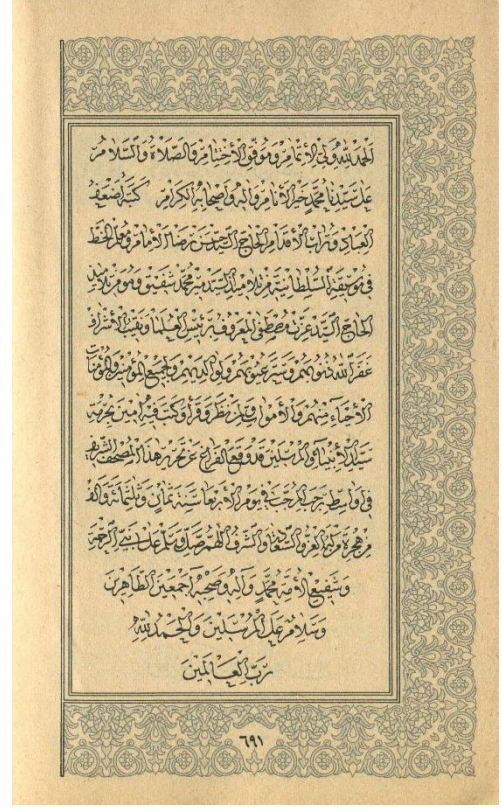 الحمد لله ولي الأتمام وموفق الأختيام والصلاة والسلام
على سيدنا محمد خير الأنام وآله وأصحابه الكرام كتبه أضعف
العباد وتراب الأقدام الحاج السيد حسن رضا الأمام ومعلم الخط
في موسيقة السلطانية من تلاميذ السيد محمد شفيق وهو من تلاميذ
الحاج السيد عزت مصطفى المعروف برئيس العلماء ونقيب الأشراف
غفر الله ذنوبهم وستر عيوبهم ولوالديهم ولجميع المؤمنين والمؤمنات
الأحياء منهم والأموات ولمن نظر وقرأ وكتب فيه آمين بحرمة
سيد الأنبياء والمرسلين قد وقع الفراغ عن تحرير هذا المصحف الشريف
في أواسط رجب المرجب في يوم الأربعا سنة ثمان وثلثمائة وألف
من هجرة من له العز والسعادة والشرف اللهم صل وسلم على نبي الرحمة
وشفيع الأمة محمد وآله وصحبه أجمعين الطاهرين
وسلام على المرسلين والحمد لله
رب العالمين
٦٩١